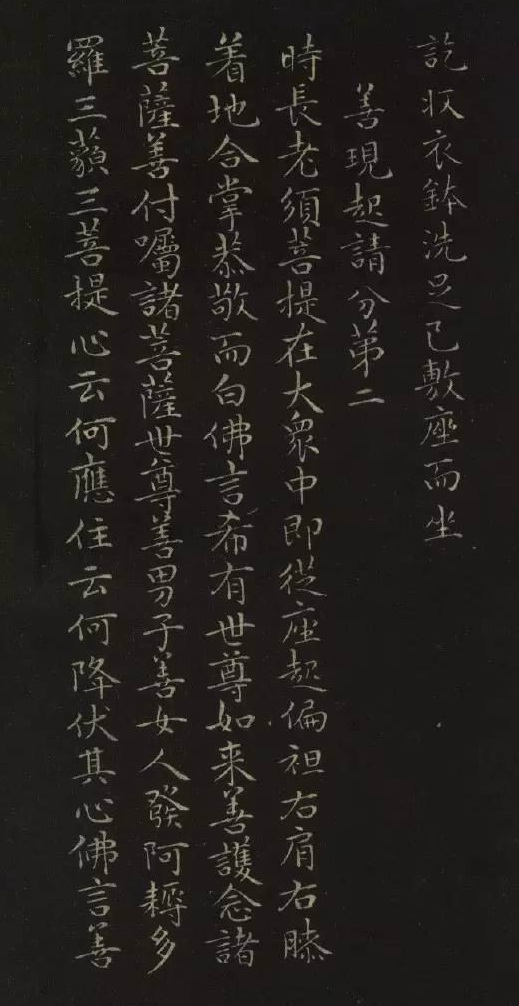 訖収衣鉢洗足已敷座而坐
善現起請分第二
時長老須菩提在大衆中即從座起偏袒右肩右膝
着地合掌恭敬而白佛言希有世尊如来善護念諸
菩薩善付囑諸菩薩世尊善男子善女人發阿耨多
羅三藐三菩提心云何應住云何降伏其心佛言善